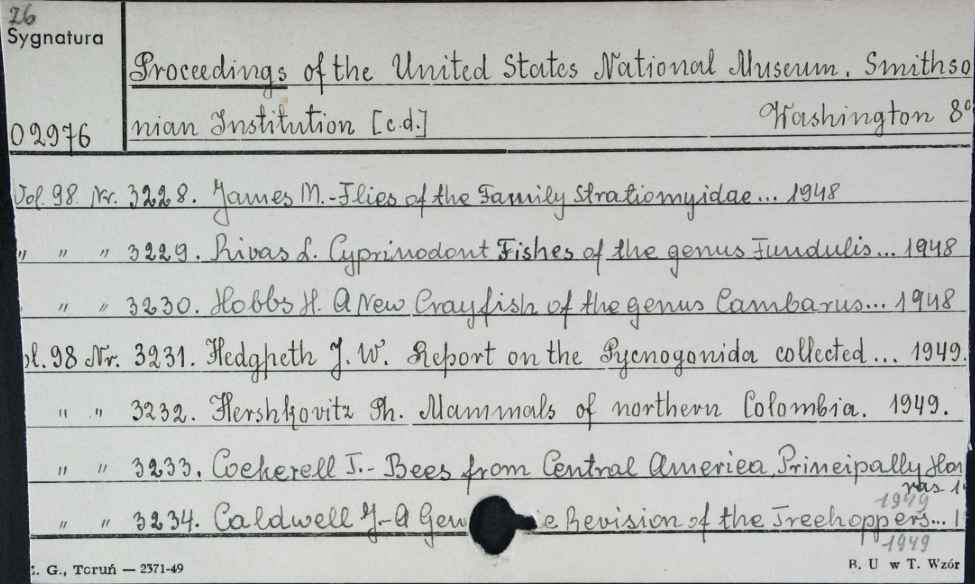 26
Sygnatura
Proceedings of the United States National Museum. Smithso
02976
nian Institution [c.d.] Washington 8°
Vol. 98. Nr. 3228. James M.-Flies of the Family Stratiomyidae... 1948
" " " 3229. Rivas L. Cyprinodont Fishes of the genus Fundulis... 1948
" " 3230. Hobbs H. A New Crayfish of the genus Cambarus... 1948
ol. 98 Nr. 3231. Hedgpeth J. W. Report on the Pycnogonida collected... 1949.
" " 3232. Hershkovitz Ph. Mammals of northern Colombia. 1949.
" " 3233. Cockerell T.- Bees from Central America, Principally Hon
ras 1
1949
" " 3234. Caldwell J-A Gen e Revision of the Treehoppers... 1
1949
. G., Toruń — 2371-49 B. U w T. Wzór